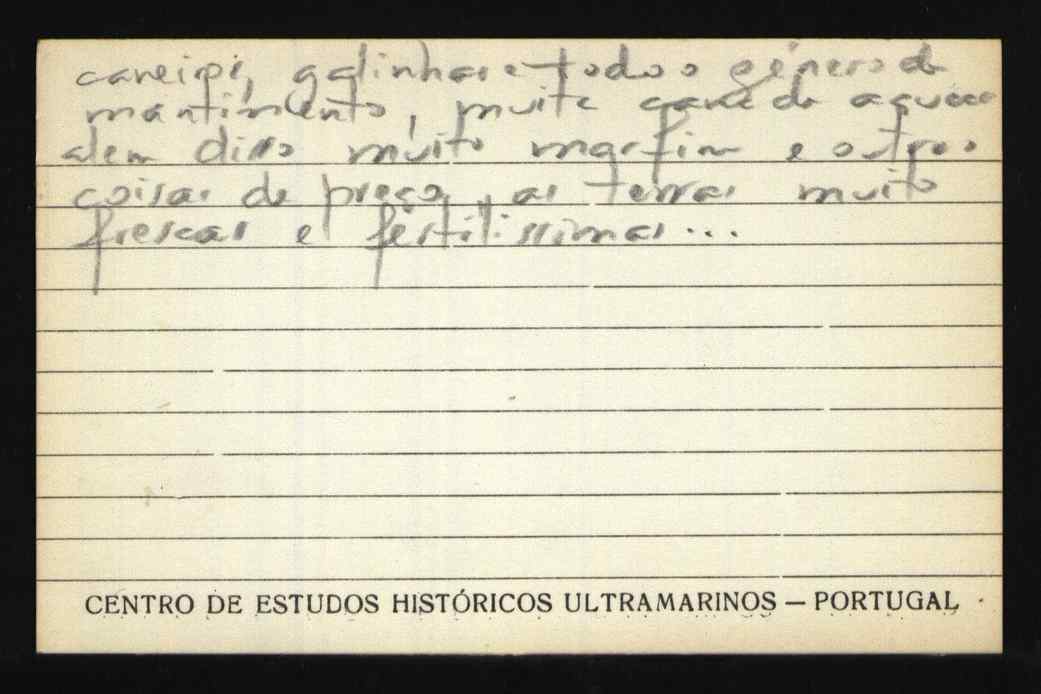 galinhas e todo o género de
mantimento, muita cana de açucar
alem disso muito marfim e outras
coisas de preço, as terras muito
frescas e fertilissimas...
CENTRO DE ESTUDOS HISTÓRICOS ULTRAMARINOS — PORTUGAL